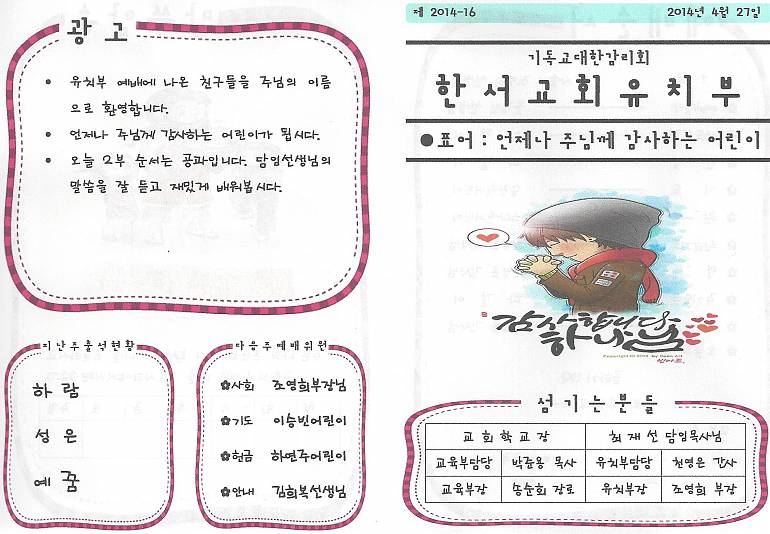 광 고
• 유치부 예배에 나온 친구들을 주님의 이름
으로 환영합니다.
• 언제나 주님께 감사하는 어린이가 됩시다.
• 오늘 2부 순서는 공과입니다. 담임선생님의
말씀을 잘 듣고 재밌게 배워봅시다.
지난주출석현황
하 람
성 은
예 꿈
다음주예배위원
✿사회 조영희부장님
✿기도 이승빈어린이
✿헌금 하연주어린이
✿안내 김희복선생님
제 2014-16 2014년 4월 27일
기독교대한감리회
한 서 교 회 유 치 부
●표어 : 언제나 주님께 감사하는 어린이
감사합니다
하나님
섬 기 는 분 들
교 회 학 교 장 최 재 선 담임목사님
교육부담당 박준용 목사 유치부담당 천영은 간사
교육부장 송순희 장로 유치부장 조영희 부장